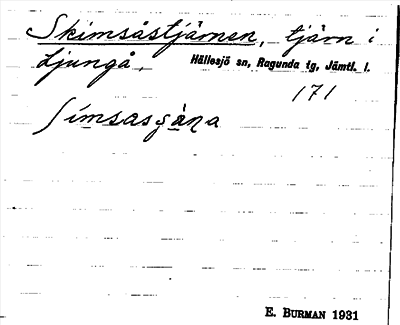 Skimsåstjärnen, tjärn i
Ljungå. Hällesjö sn, Ragunda tg, Jämtl. l.
171
E. BURMAN 1931